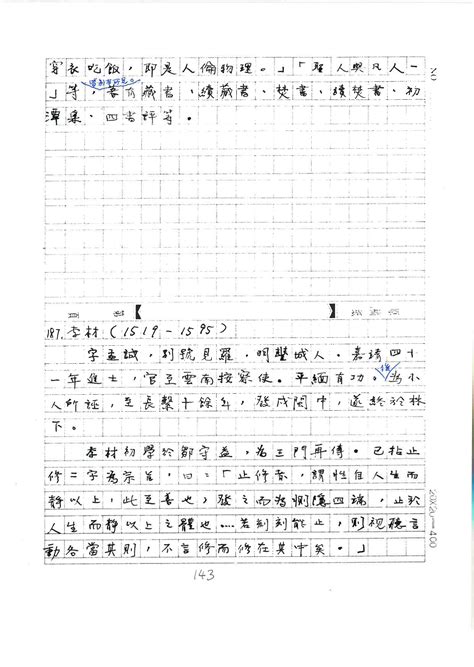 穿衣吃飯，即是人倫物理。」「聖人與凡人一
」等，著有藏書、續藏書、焚書、續焚書、初
潭集、四書評等。
187. 李材（1519－1595）
字孟誠，別號見羅，明豐城人。嘉靖四十
一年進士，官至雲南按察使。平緬有功。後為小
人所誣，至長繫十餘年，發戍閩中，遂終於林
下。
李材初學於鄒守益，為王門再傳。已拈止
修二字為宗旨，曰：「止修者，謂性自人生而
靜以上，此至善也，發之而為惻隱四端，止於
人生而靜以上之體也....若刻刻能止，則視聽言
動各當其則，不言修而修在其中矣。」
20X20=400
143